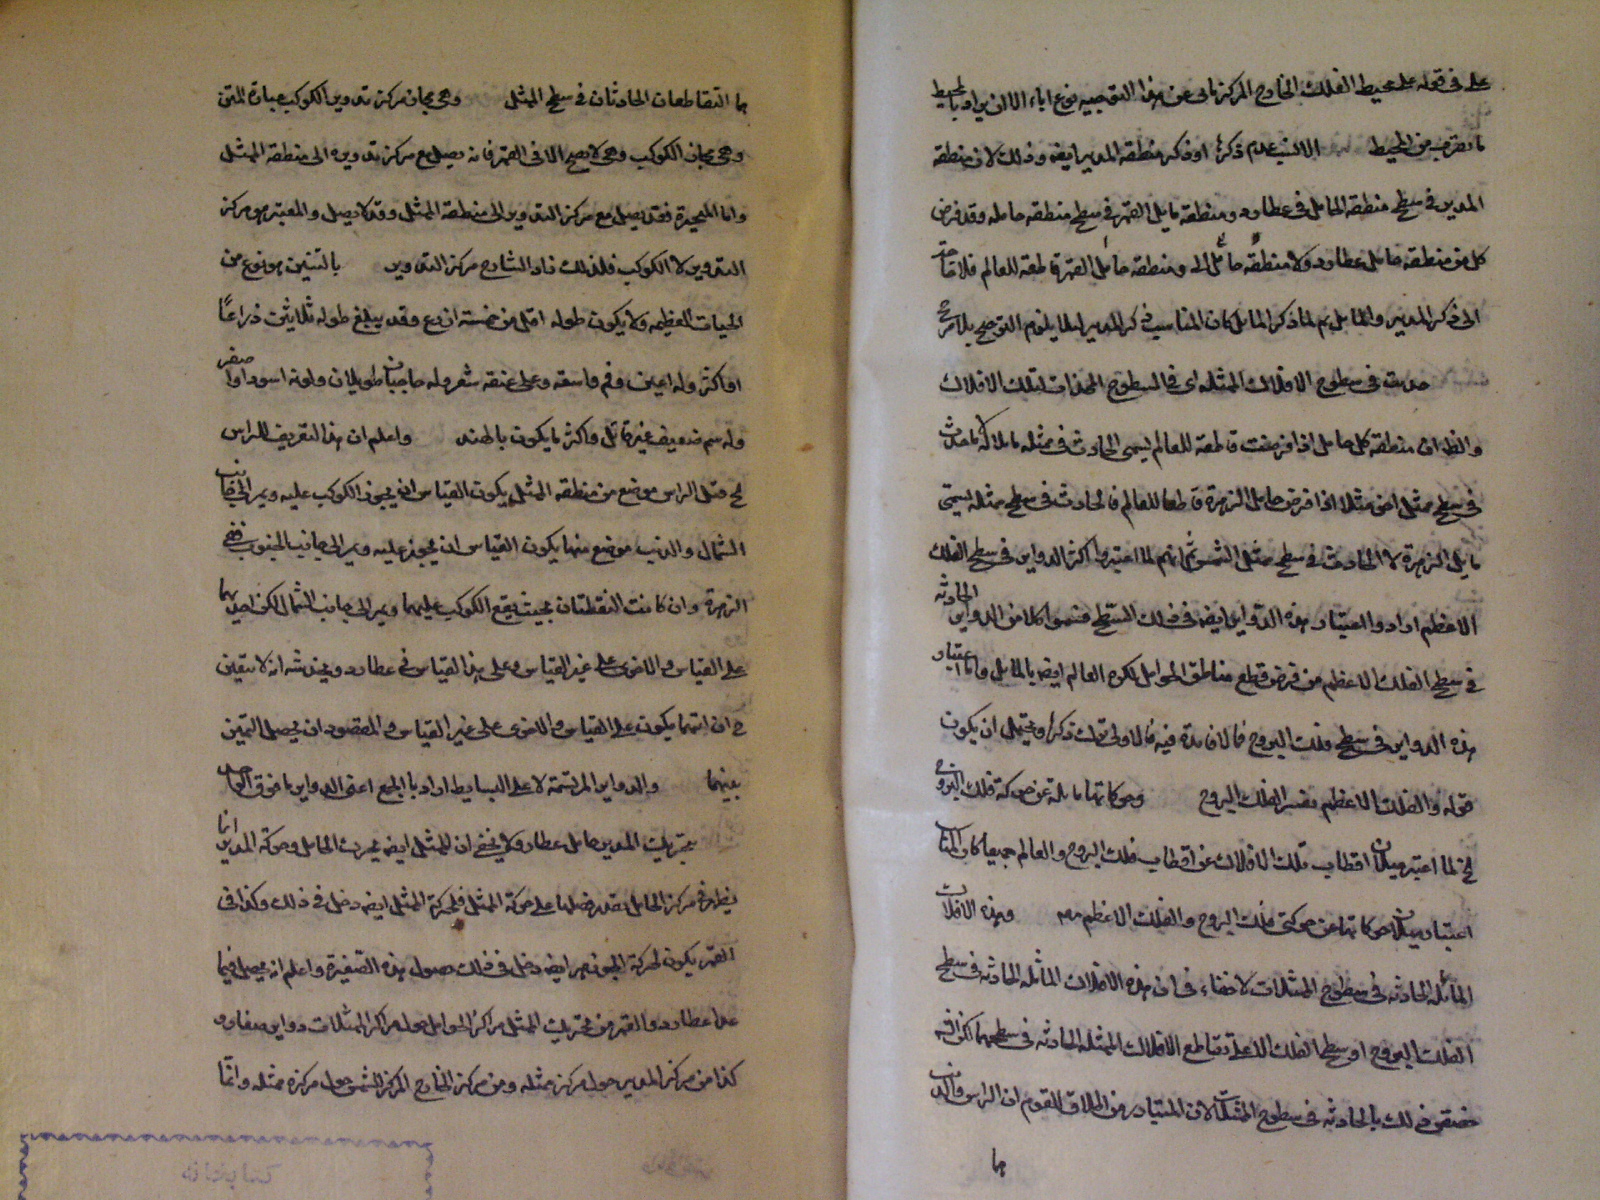 على في قوله على محيط الفلك الخارج المركز يابى عن هذا التوجيه نوع اباء الا ان يراد بالمحيط
ما يقرب من المحيط الانسب عدم ذكرها او ذكر منطقة المدير ايضا وذلك لان منطقة
المدير في سطح منطقة الحامل في عطارد ومنطقة مايل القمر في سطح منطقة حامله وقد فرض
كل من منطقة حامل عطارد ومنطقة حامل القمر قاطعة للعالم فلا حاجة
الى ذكر المدير والمايل ثم لما ذكر المايل كان المناسب ذكر المدير ايضا لئلا يلزم الترجيح بلا مرجح
حدثت في سطوح الافلاك الممثلة اى في السطوح المحدبات لتلك الافلاك
والظ ان منطقة كل حامل اذا فرضت قاطعة للعالم يسمى الحادث في ممثله مايلا له لا ما حدث
في سطح ممثل اخر مثلا اذا فرض حامل الزهرة قاطعا للعالم فالحادث في سطح ممثله يسمى
مايل الزهرة لا الحادث في سطح ممثل الشمس ثم انهم لما اعتبروا اكثر الدواير في سطح الفلك
الاعظم ارادوا اعتبار هذه الدواير ايضا في ذلك السطح فسموا كلا من الدواير الحادثة
في سطح الفلك الاعظم من فرض قطع مناطق الحوامل لكرة العالم ايضا بالمايل واما اعتبار
هذه الدواير في سطح فلك البروج فلا فائدة فيه فالاولى ترك ذكرها ويحتمل ان يكون
قوله والفلك الاعظم تفسير الفلك البروج وحركاتها مايلة عن حركة فلك البروج
لما اعتبر ميلان اقطاب تلك الافلاك عن اقطاب فلك البروج والعالم جميعا كان المناسب
اعتبار ميلان حركاتها عن حركتى فلك البروج والفلك الاعظم معا وهذه الافلاك
المائلة الحادثة في سطوح الممثلات لا خفاء في ان هذه الافلاك المائلة الحادثة في سطح
الفلك البروج او سطح الفلك الاعلى تقاطع الافلاك الممثلة الحادثة في سطحهما لكن
ذلك بالحادثة في سطوح الممثلات لان المتبادر من اطلاق القوم ان الراس والذنب
هما
هما التقاطعان الحادثان في سطح الممثل وهى مجاز مركز تدوير الكوكب عبارة المتن
وهى مجاز الكوكب وهى لا يصح الا في القمر فانه يصل مع مركز تدويره الى منطقة الممثل
واما المتحيرة فقد يصل مع مركز التدوير الى منطقة الممثل وقد لا يصل والمعتبر هو مركز
التدوير لا الكوكب فلذلك زاد الشارح مركز التدوير بالتنين هو نوع من
الحيات العظيمة ولا يكون طوله اقل من خمسة اذرع وقد يبلغ طوله ثلاثين ذراعا
او اكثر وله اعين وفم واسعة وعلى عنقه شعر وله حاجبان طويلان ولونه اسود او اصفر
وله سم ضعيف غير قاتل واكثر ما يكون بالهند واعلم ان هذا التعريف للراس
قيل الراس موضع من منطقة الممثل يكون القياس ان يجوز الكوكب عليه ويمر الى جانب
الشمال والذنب موضع منها يكون القياس ان يجوز عليه ويمر الى جانب الجنوب ففى
الزهرة وان كانت النقطتان بحيث يقع الكوكب عليهما ويمر الى جانب الشمال لكن احديهما
على القياس والاخرى على غير القياس وعلى هذا القياس في عطارد ويخدشه انه لا يتعين
ان ايتهما يكون على القياس والاخرى على غير القياس والمقصود ان يحصل التميز
بينهما والدواير المرتسمة لا على البسايط اراد بالجمع اعنى الدواير ما فوق الواحد
بتحريك المدير حامل عطارد لا يخفى ان للممثل ايضا يحرك الحامل وحركة المدير انما
يظهر في مركز الحامل بقدر فضلها على حركة الممثل فلحركة الممثل ايضا دخل في ذلك وكذا في
القمر يكون لحركة الجوزهر ايضا دخل في ذلك حصول هذه الصغيرة واعلم انه يحصل فيما
عدا عطارد والقمر من تحريك الممثل مراكز الحوامل حول مراكز الممثلات دواير صغار و
كذا من مركز المدير حول مركز ممثله ومن مركز الخارج المركز للشمس حول مركز ممثله وانما